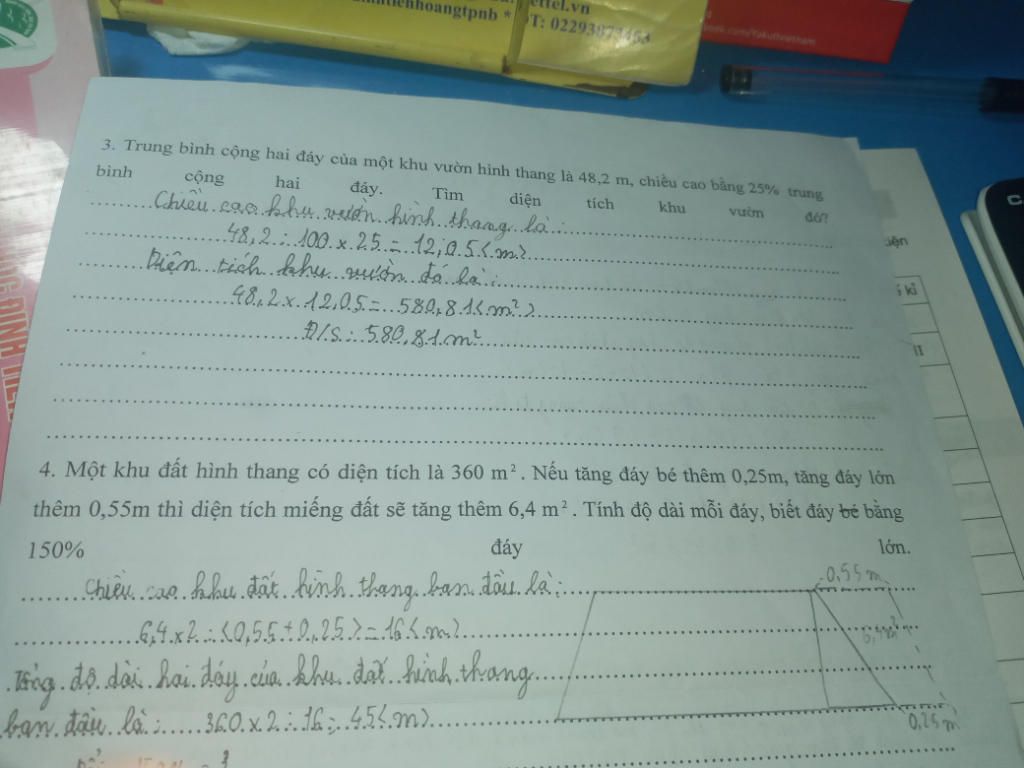 ettel.vn
T: 02293873463
ook.com/Yakultvietnam
3. Trung bình cộng hai đáy của một khu vườn hình thang là 48,2 m, chiều cao bằng 25% trung
bình cộng hai đáy. Tìm diện tích khu vườn đó?
Chiều cao khu vườn hình thang là:
48,2 : 100 x 25 = 12,05 (m)
Diện tích khu vườn đó là:
48,2 x 12,05 = 580,81 (m²)
Đ/S: 580,81 m²
4. Một khu đất hình thang có diện tích là 360 m². Nếu tăng đáy bé thêm 0,25m, tăng đáy lớn
thêm 0,55m thì diện tích miếng đất sẽ tăng thêm 6,4 m². Tính độ dài mỗi đáy, biết đáy bé bằng
150% đáy lớn.
Chiều cao khu đất hình thang ban đầu là:
6,4 x 2 : (0,55 + 0,25) = 16 (m)
Tổng độ dài hai đáy của khu đất hình thang
ban đầu là: 360 x 2 : 16 = 45 (m)
0,55 m
6,4m²
0,25 m
II